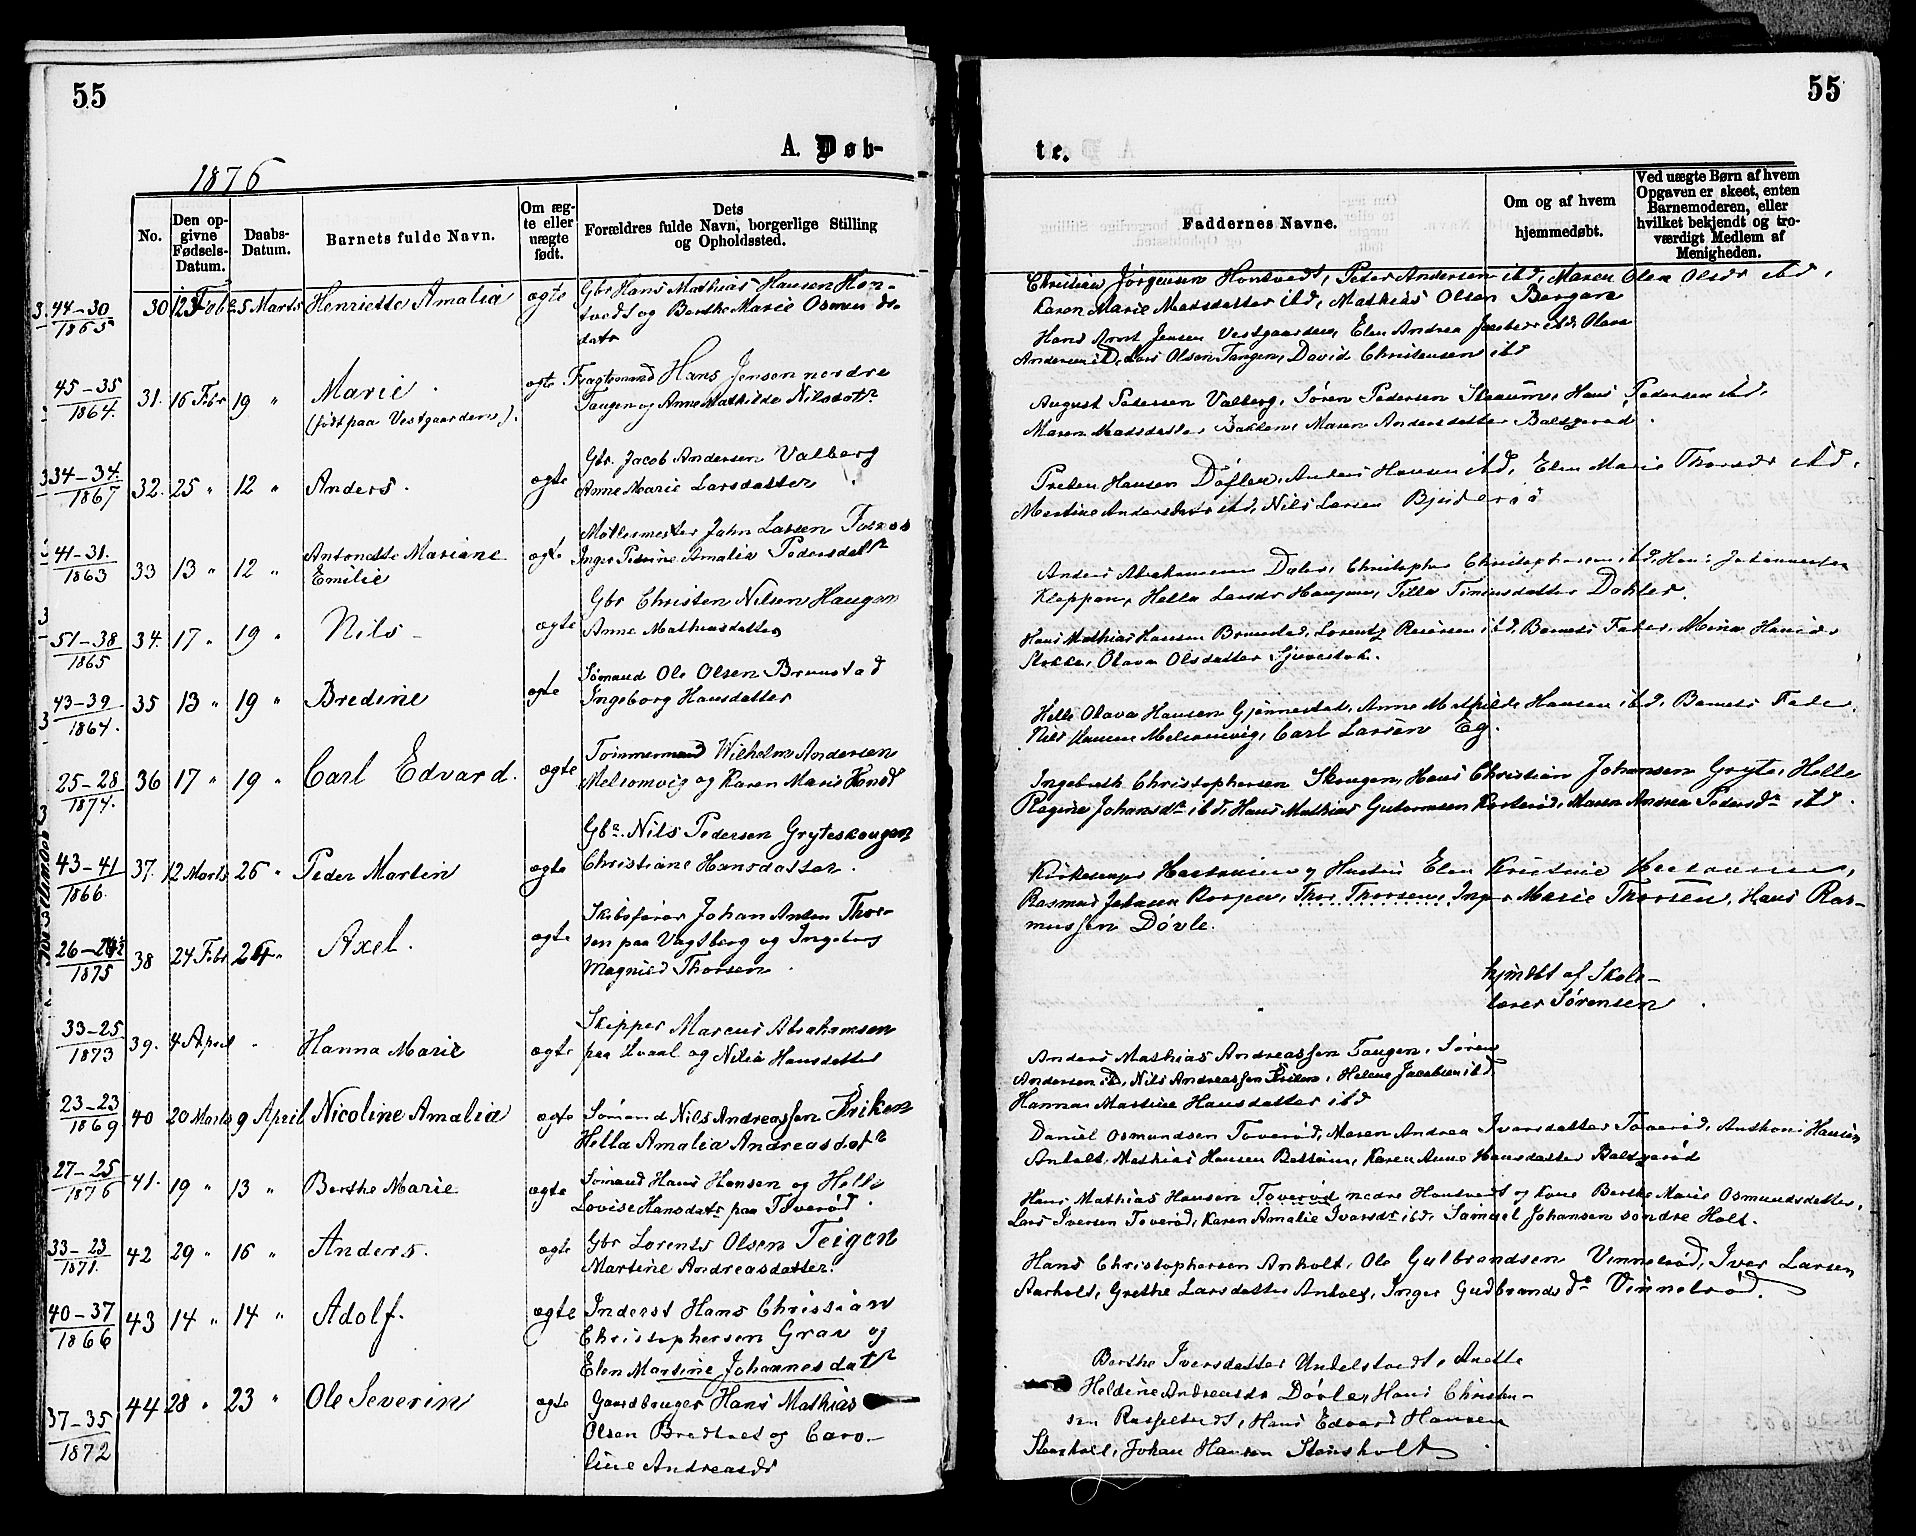 55
A. Døb-
1876
No.
Den op-
givne
Fødsels-
Datum.
Daabs-
Datum.
Barnets fulde Navn.
Om æg-
te eller
uægte
født.
Dets
Forældres fulde Navn, borgerlige Stilling
og Opholdssted.
44-30
1865
30 Feb 5 Marts Henriette Amalia ægte Gbr Hans Mathias Hansen Hon-
tvedt og Berthe Marie Osmunds-
datr
45-35
1864.
31. 16 Febr 19 " Marie ægte Fragtemand Hans Jensen nordre
(født paa Vestgaarden). Tangen og Anne Mathilde Nilsdatr
34-34
1867
32. 25 " 12 " Anders. ægte Gbr. Jacob Andersen Valberg
Anne Marie Larsdatter
41-31.
1863
33 13 " 12 " Antonette Mariane ægte Møllemester John Larsen Fosnes
Emilie Inger Petrine Amalia Pedersdatr
51-38
1865
34. 17 " 19 " Nils ægte Gbr Christen Nilsen Haugan
Anne Mathiasdatter
43-39
1864.
35 13 " 19 " Bredine ægte Sømand Ole Olsen Brunstad
Ingeborg Hansdatter
25-28
1874.
36 17 " 19 " Carl Edvard. ægte Tømmermand Wilhelm Andersen
Melsomvig og Karen Marie
43-41
1866.
37. 12 Marts 26 " Peder Martin ægte Gbr. Nils Pedersen Gryteskougen
Christiane Hansdatter.
26-
1875
38 24 Febr " Axel. ægte Skibsfører Johan Anton Thor-
sen paa Vagtberg og Ingeborg
Magnild Thorsen
33-25
1873
39. 4 April " Hanna Marie ægte Skipper Marcus Abrahamsen
paa og Nilia Hansdatter
23-23
1869
40 20 Marts 9 April Nicoline Amalia ægte Sømand Nils Andreassen Kriken
Hella Amalia Andreasdatr
27-25
1876
41. 19 " 13 " Berthe Marie ægte Sømand Hans Hansen og Helle
Lovise Hansdatr paa Toverød.
33-23
1871.
42 29 " 16 " Anders. ægte Gbr Lorents Olsen Teigen
Martine Andreasdatter.
40-37
1866
43 14 " 14 " Adolf. ægte Inderst Hans Christian
Christophersen Grav og
Elen Martine Johannesdatr
37-35
1872
44 28 " 23 " Ole Severin ægte Gaardbruger Hans Mathias
Olsen Bredtvet og Caro-
line Andreasdr
55
te.
Faddernes Navne.
Om og af hvem
hjemmedøbt.
Ved uægte Børn af hvem
Opgaven er skeet, enten
Barnemoderen, eller
hvilket bekjendt og tro-
værdigt Medlem af
Menigheden.
Christian Jørgensen Hontvedt, Peter Andersen ibd, Maren Olea Olsdr ibd,
Karen Marie Madsdatter ibd, Mathias Olsen Bergan
Hans Arnt Jensen Vestgaarden, Elen Andrea ibd, Olava
Andersen ibd, Lars Olsen Tangen, David Christensen ibd
August Petersen Valberg, Søren Pedersen Skaum, Hans Pedersen ibd,
Maren Madsdatter Bakken, Maren Andersdatter Balsgerød.
Preben Hansen Døflen, Anders Hansen ibd, Elen Marie Thorsdr ibd,
Martine Andersdatr ibd, Nils Larsen
Anders Abrahamsen Døler, Christopher Christophersen ibd, Hans Johannesen
Kleppan, Hella Larsdr Haugan, Tilla Timansdatter Døhler.
Hans Mathias Hansen Brunstad, Lorentz Reiersen ibd, Barnets Fader, Mina Hansdr
Stokke, Olava Olsdatter
Helle Olava Hansen Gjennestad, Anne Mathilde Hansen ibd, Barnets Fader
Nils Hansen Melsomvig, Carl Larsen Eg.
Ingebreth Christophersen Skougen, Hans Christian Johansen Gryte, Helle
Regine Johansdr ibd, Hans Mathias Guttormsen Korterød, Maren Andrea Pedersdr ibd.
Kirkesanger og Hustru Elen Kristine
Rasmus Johnsen Borgen, Thor Thorsen, Inger Marie Thorsen, Hans Ras-
mussen Døvle.
hjmdbt af Skole-
lærer Sørensen
Anders Mathias Andreassen Tangen, Søren
Andersen ibd, Nils Andreassen Kriken, Helene Jacobsen ibd
Hanna Martine Hansdatter ibd
Daniel Osmundsen Toverød, Maren Andrea Ivarsdatter Toverød, Anthon Hansen
Anholt, Mathias Hansen Bettum, Karen Anne Hansdatter Balsgerød
Hans Mathias Hansen Toverød nedre Hontvedt og Kone Berthe Marie Osmundsdatter,
Lars Iversen Toverød, Karen Amalie Ivarsdr ibd, Samuel Johansen søndre Holt.
Hans Christophersen Anholt, Ole Gulbrandsen Vinnelrød, Iver Larsen
Aarholt, Grethe Larsdatter Anholt, Inger Gudbrandsdr Vinnelrød.
Berthe Iversdatter Undelstvedt, Anette
Heldine Andreasdr Døvle, Hans Christen-
sen Hans Edvard Hansen
Stensholt, Johan Hansen Stensholt